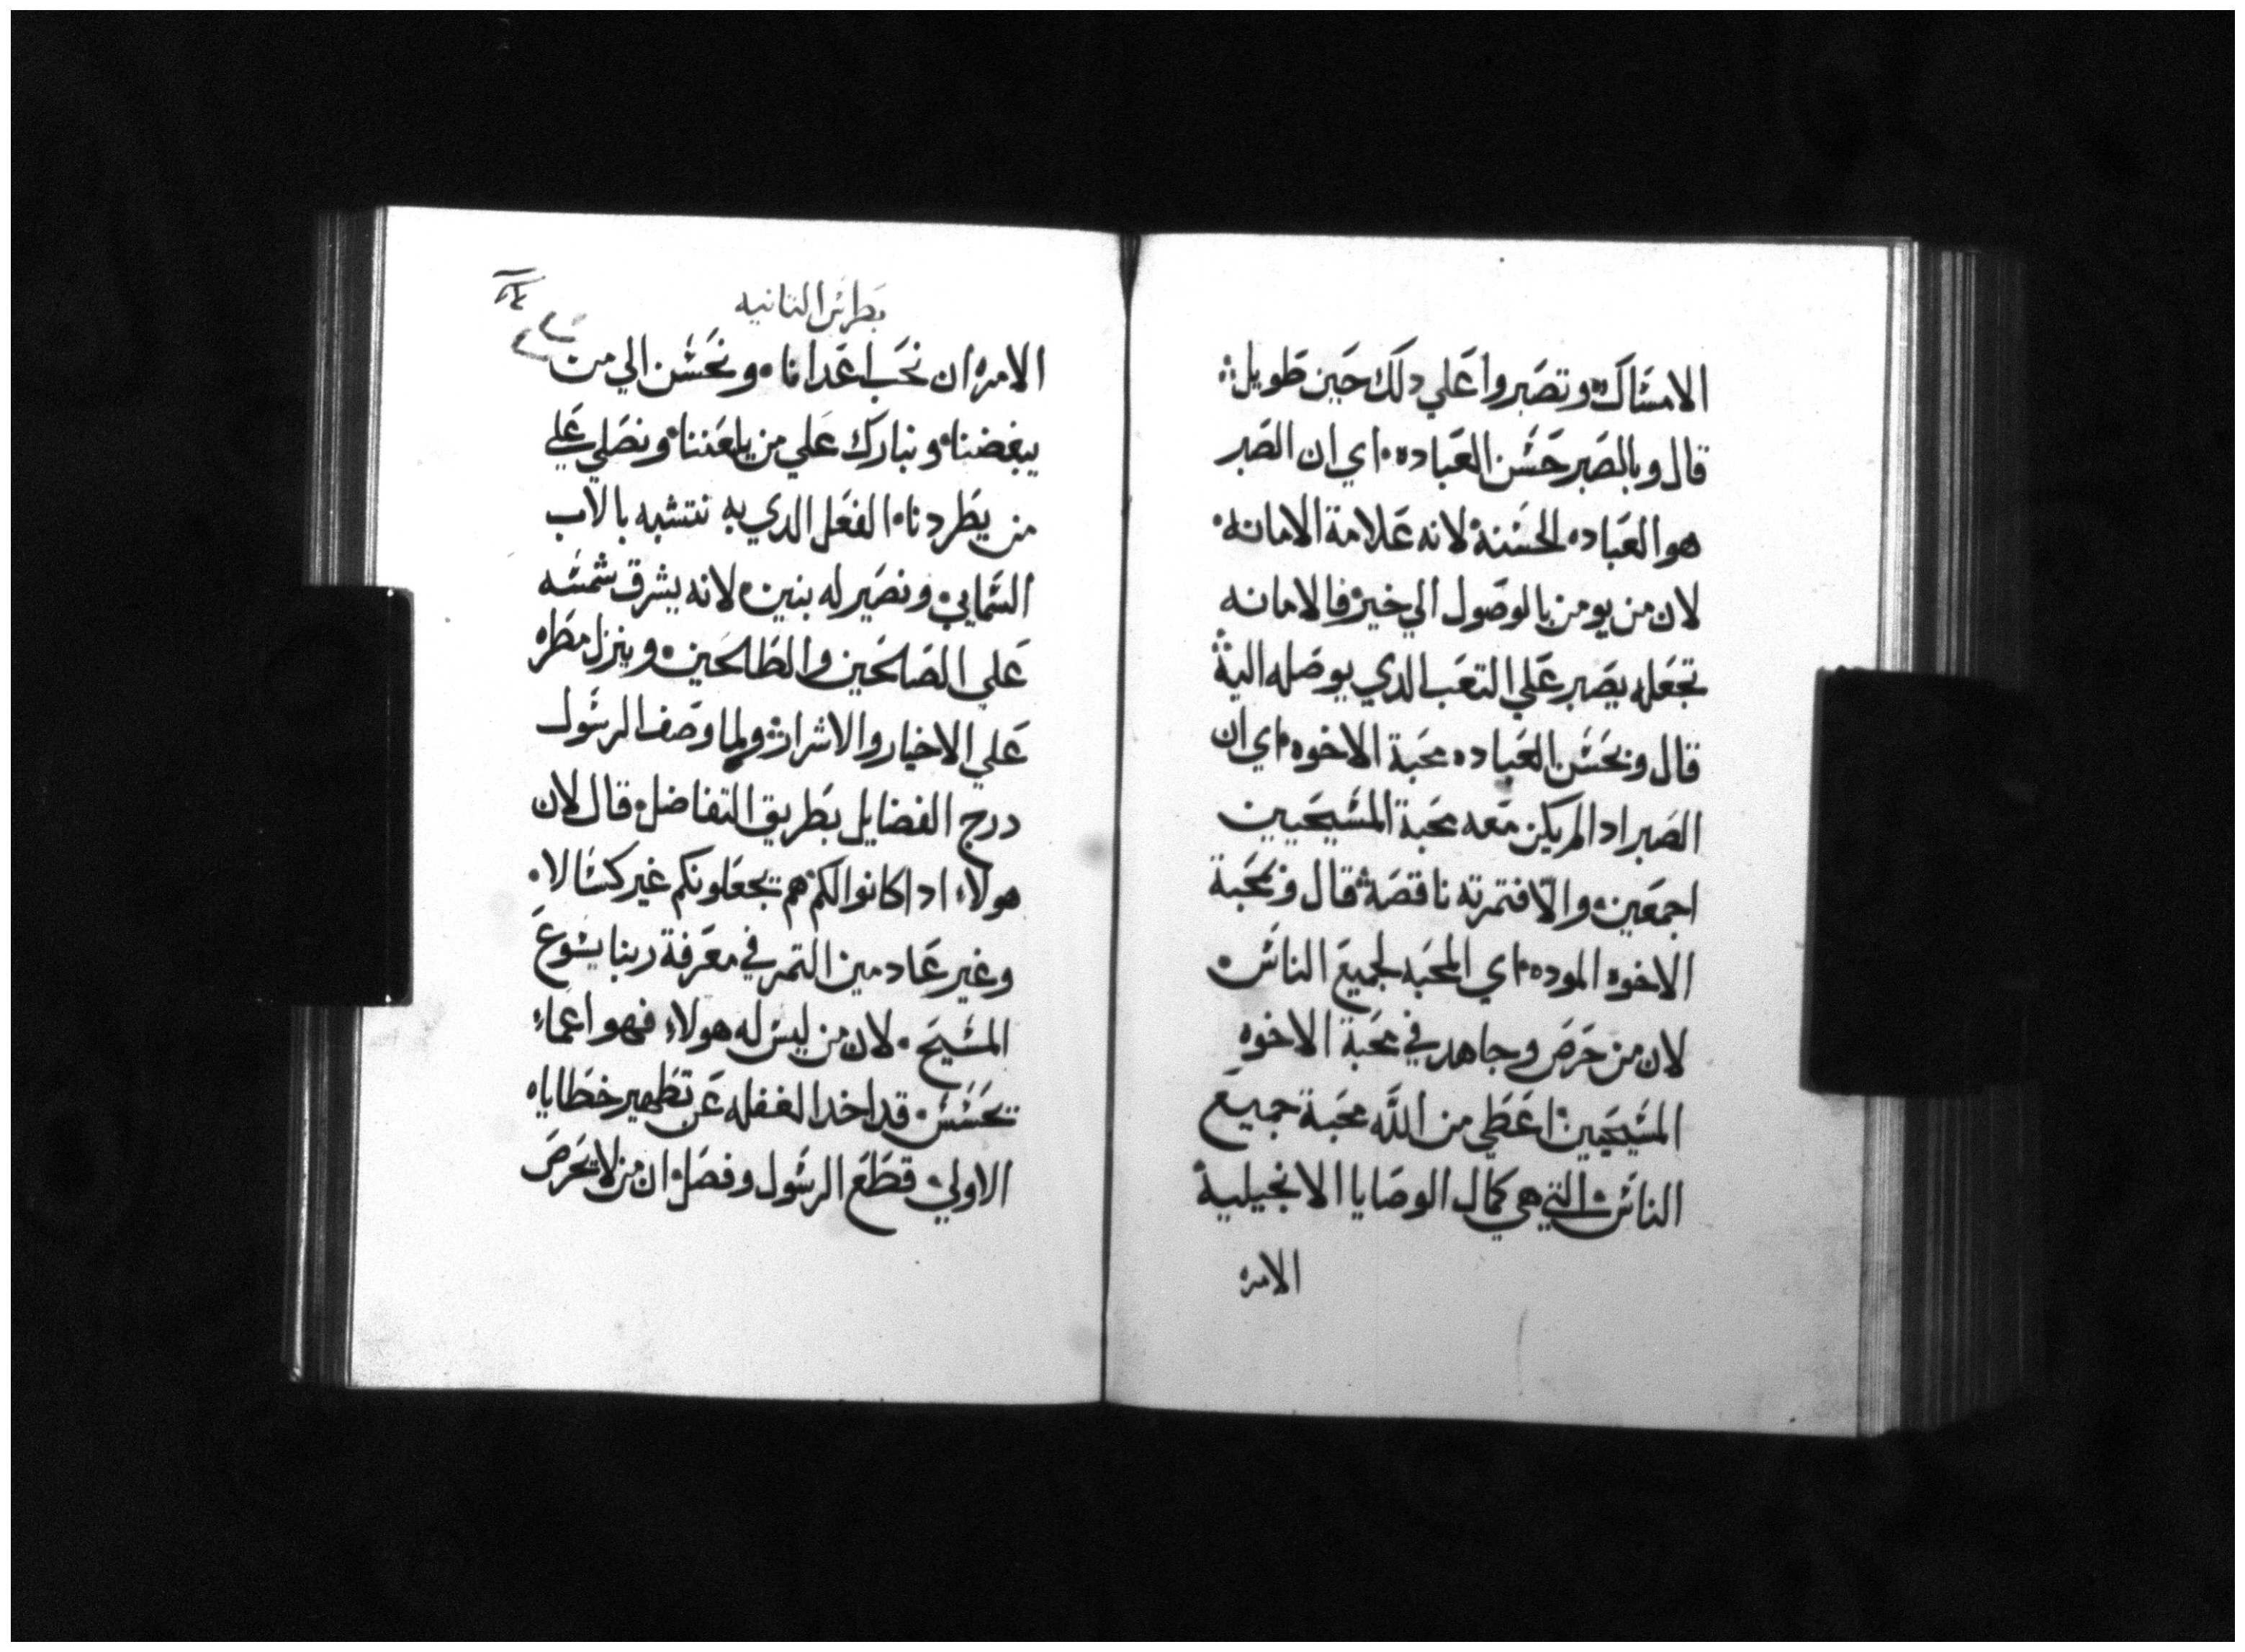 الامساك وتصبروا علي دلك حين طويل
قال وبالصبر حسن العباده اي ان الصبر
هو العباده الحسنة لانه علامة الامانه
لان من يومن بالوصول الي خير فالامانه
تجعله يصبر علي التعب الدي يوصله الية
قال وبحسن العباده محبة الاخوه اي ان
الصبر ادا لم يكن معه محبة المسيحيين
اجمعين والا فتمرته ناقصة قال وبمحبة
الاخوه الموده اي المحبه لجميع الناس
لان من حرص وجاهد في محبة الاخوه
المسيحيين اعطي من الله محبة جميع
الناس التي هي كمال الوصايا الانجيلية
الامره
بطرس التانيه
الامره ان نحب اعدانا ونحسن الي من
يبغضنا ونبارك علي من يلعننا ونصلي علي
من يطردنا الفعل الدي به نتشبه بالاب
السمايي ونصير له بنين لانه يشرق شمسه
علي الصالحين والطالحين وينزل مطره
علي الاخيار والاشرار ولما وصف الرسول
درج الفضايل بطريق التفاضل قال لان
هولاء ادا كانوا لكم هم تجعلونكم غير كسالا
وغير عادمين التمر في معرفة ربنا يسوع
المسيح لان من ليس له هولاء فهو اعماء
تحسس قد اخد الغفله عن تطهير خطاياه
الاولي قطع الرسول وفصل ان من لا يحرص